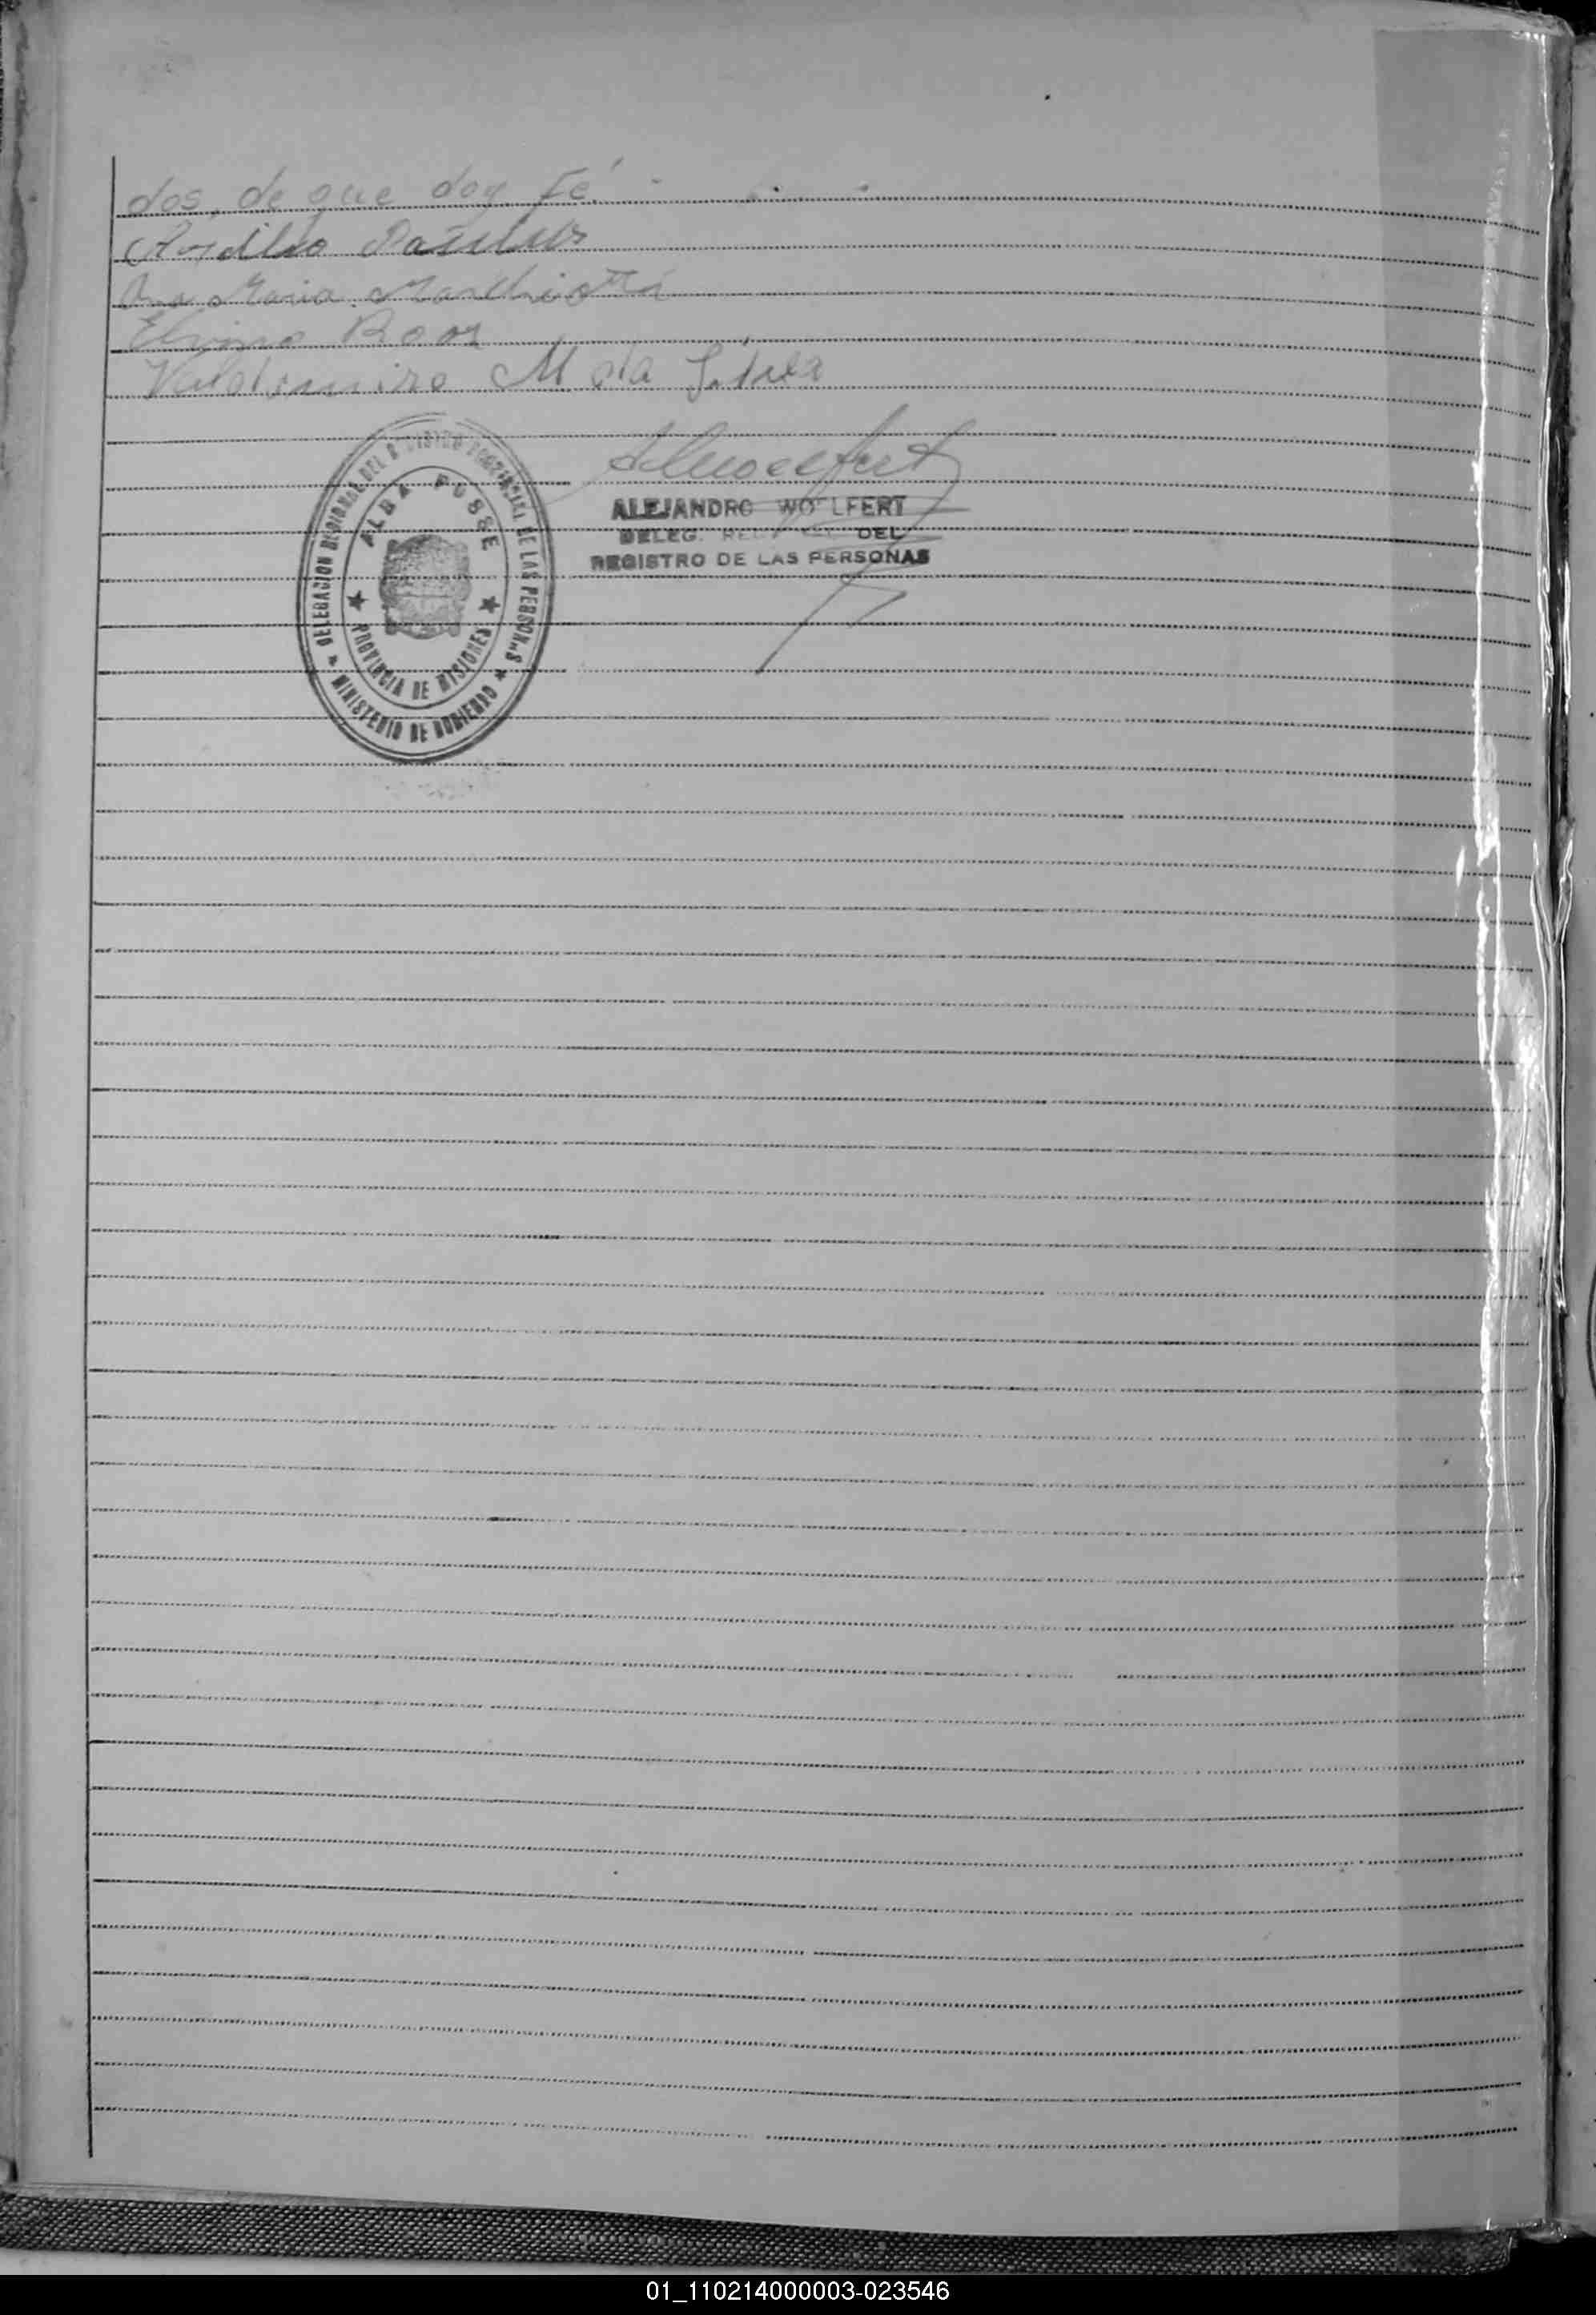 dos, de que doy Fé.-
Ana Maria Marchiotti
Elvino Roos
Valdemiro Mota Silva
ALEJANDRO WOLFERT
DELEG. DEL
REGISTRO DE LAS PERSONAS
DELEGACION REGIONAL DEL REGISTRO PROVINCIAL DE LAS PERSONAS
ALBA POSSE
PROVINCIA DE MISIONES
MINISTERIO DE GOBIERNO
01_110214000003-023546